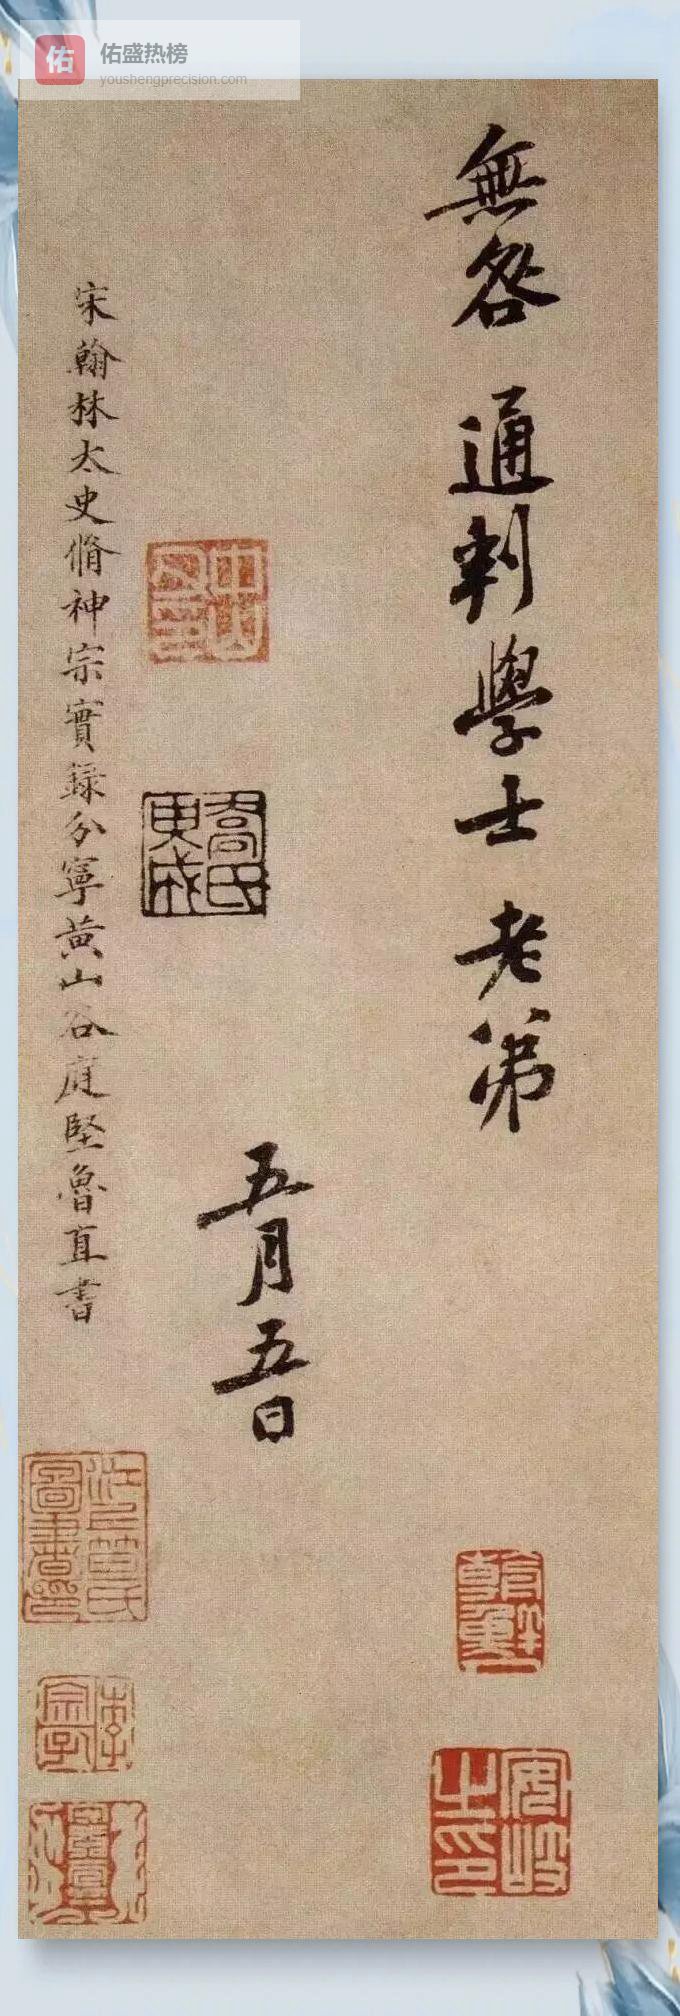 佑
佑盛热榜
youshengprecision.com
無咎 通判學士 老弟
五月五日
宋翰林太史脩神宗實録分寧黄山谷庭堅魯直書
喬氏
安岐之印